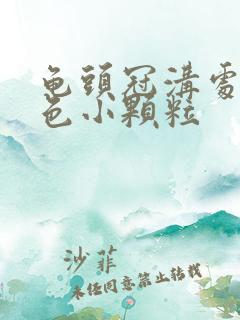 龟頭冠溝處
色小顆粒
沙菲
未经同意禁止转载